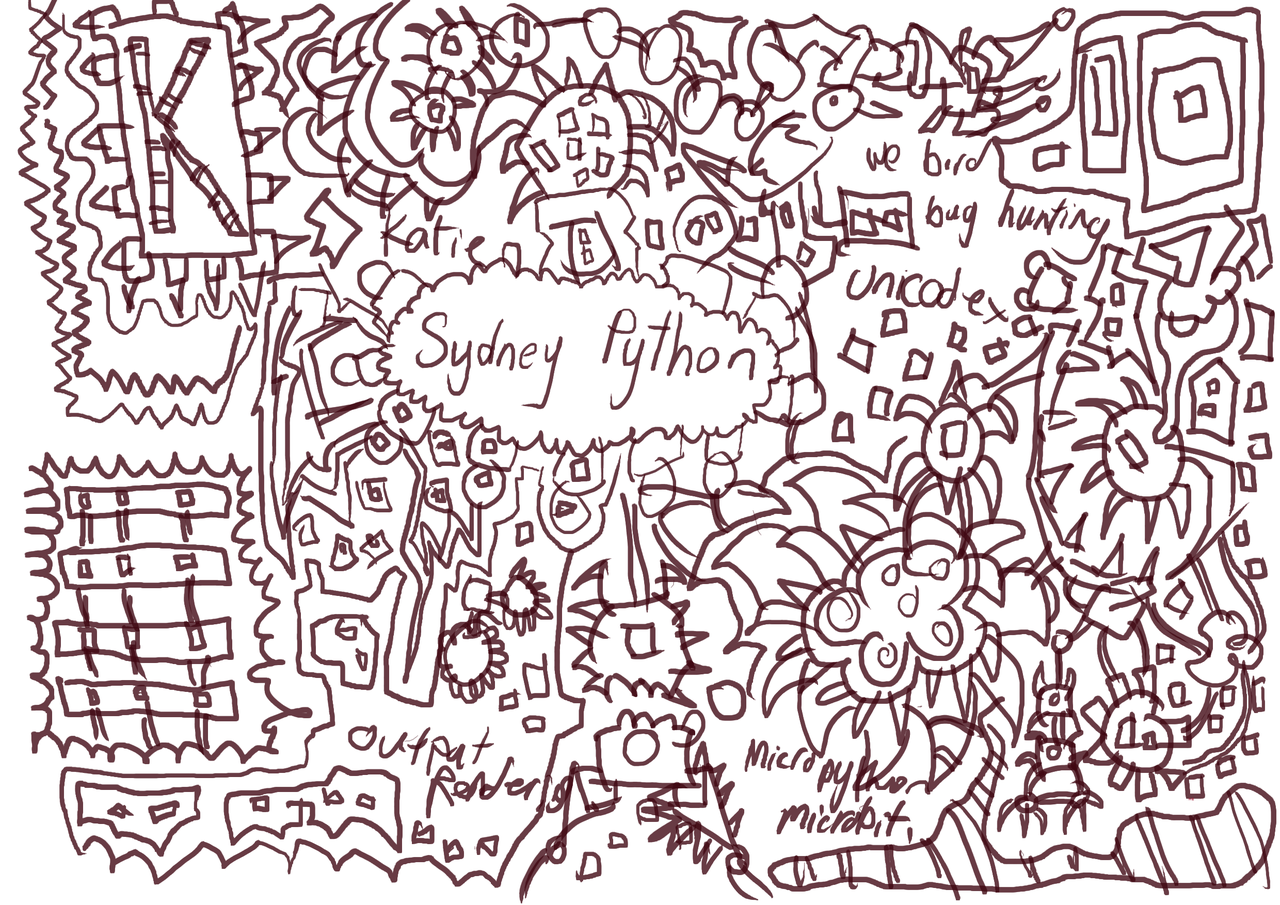 K
Katie
we bird
bug hunting
Unicodex
Sydney Python
Output
Renders
Micropython
microbit.